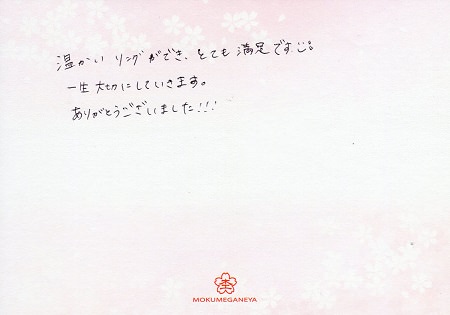 温かい リングができ、とても 満足です☺。
一生 大切にしていきます。
ありがとうございました!!!
MOKUMEGANEYA